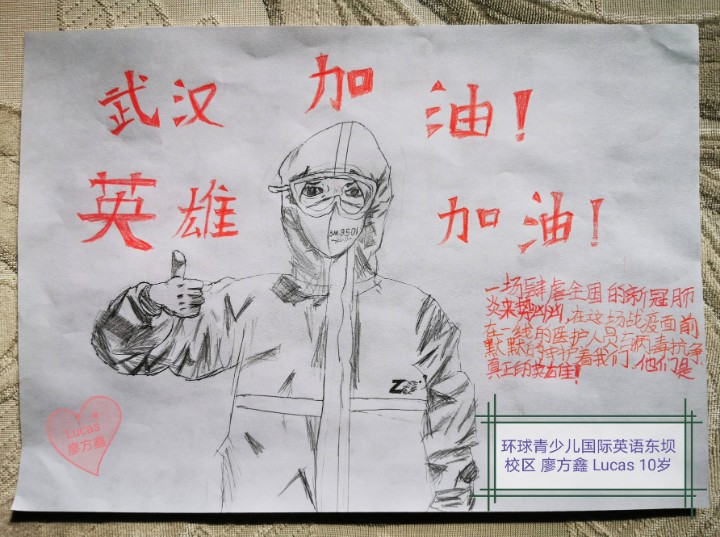 武汉 加 油！
英雄 加油！
3M 9501
一场肆虐全国的新冠肺
炎来势汹汹,在这场战疫面前
在一线的医护人员与病毒抗争
默默的守护着我们,他们是
真正的英雄!
Lucas
廖方鑫
环球青少儿国际英语东坝
校区 廖方鑫 Lucas 10岁